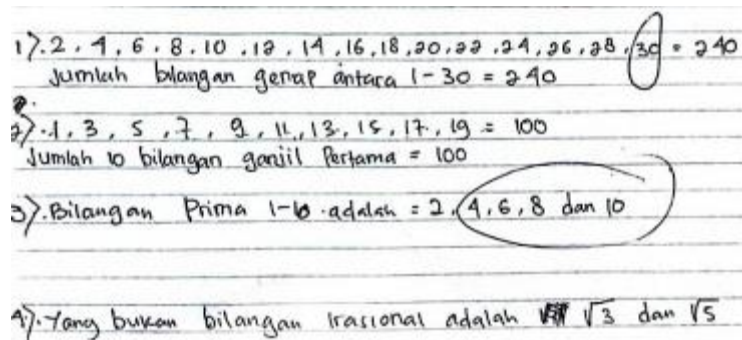 1). 2, 4, 6, 8, 10, 12, 14, 16, 18, 20, 22, 24, 26, 28, 30 = 240
Jumlah bilangan genap antara 1-30 = 240
2). 1, 3, 5, 7, 9, 11, 13, 15, 17, 19 = 100
Jumlah 10 bilangan ganjil Pertama = 100
3). Bilangan Prima 1-10 adalah = 2, 4, 6, 8 dan 10
4). Yang bukan bilangan irasional adalah √3 dan √5